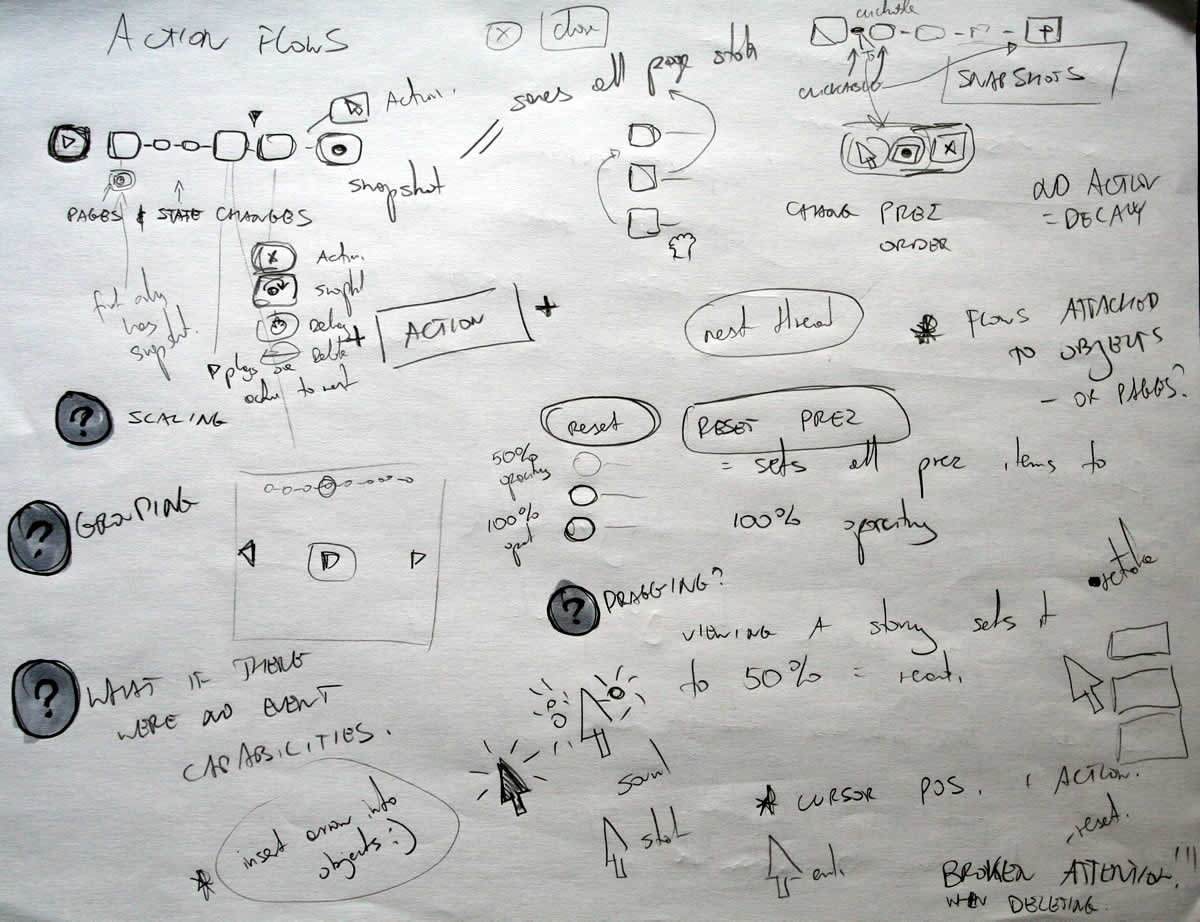 ACTION FLOWS
saves all page state
clickable
CLICKABLE
SNAPSHOTS
Action.
snapshot
PAGES & STATE CHANGES
first only
has
snapshot.
Action.
Delay
Delete
ACTION
CHANGE PREZ
ORDER
NO ACTION
= DECAY
FLOWS ATTACHED
TO OBJECTS
- OR PAGES?
? SCALING
reset
RESET PREZ
= sets all prez items to
100% opacity
50%
opacity
100%
? GROUPING
? DRAGGING?
VIEWING A story sets it
to 50% = read.
? WHAT IF THERE
WERE NO EVENT
CAPABILITIES.
insert arrow into
objects :)
sound
* CURSOR POS. ACTION.
reset.
BROKEN ATTENTION!!!
WHEN DELETING.